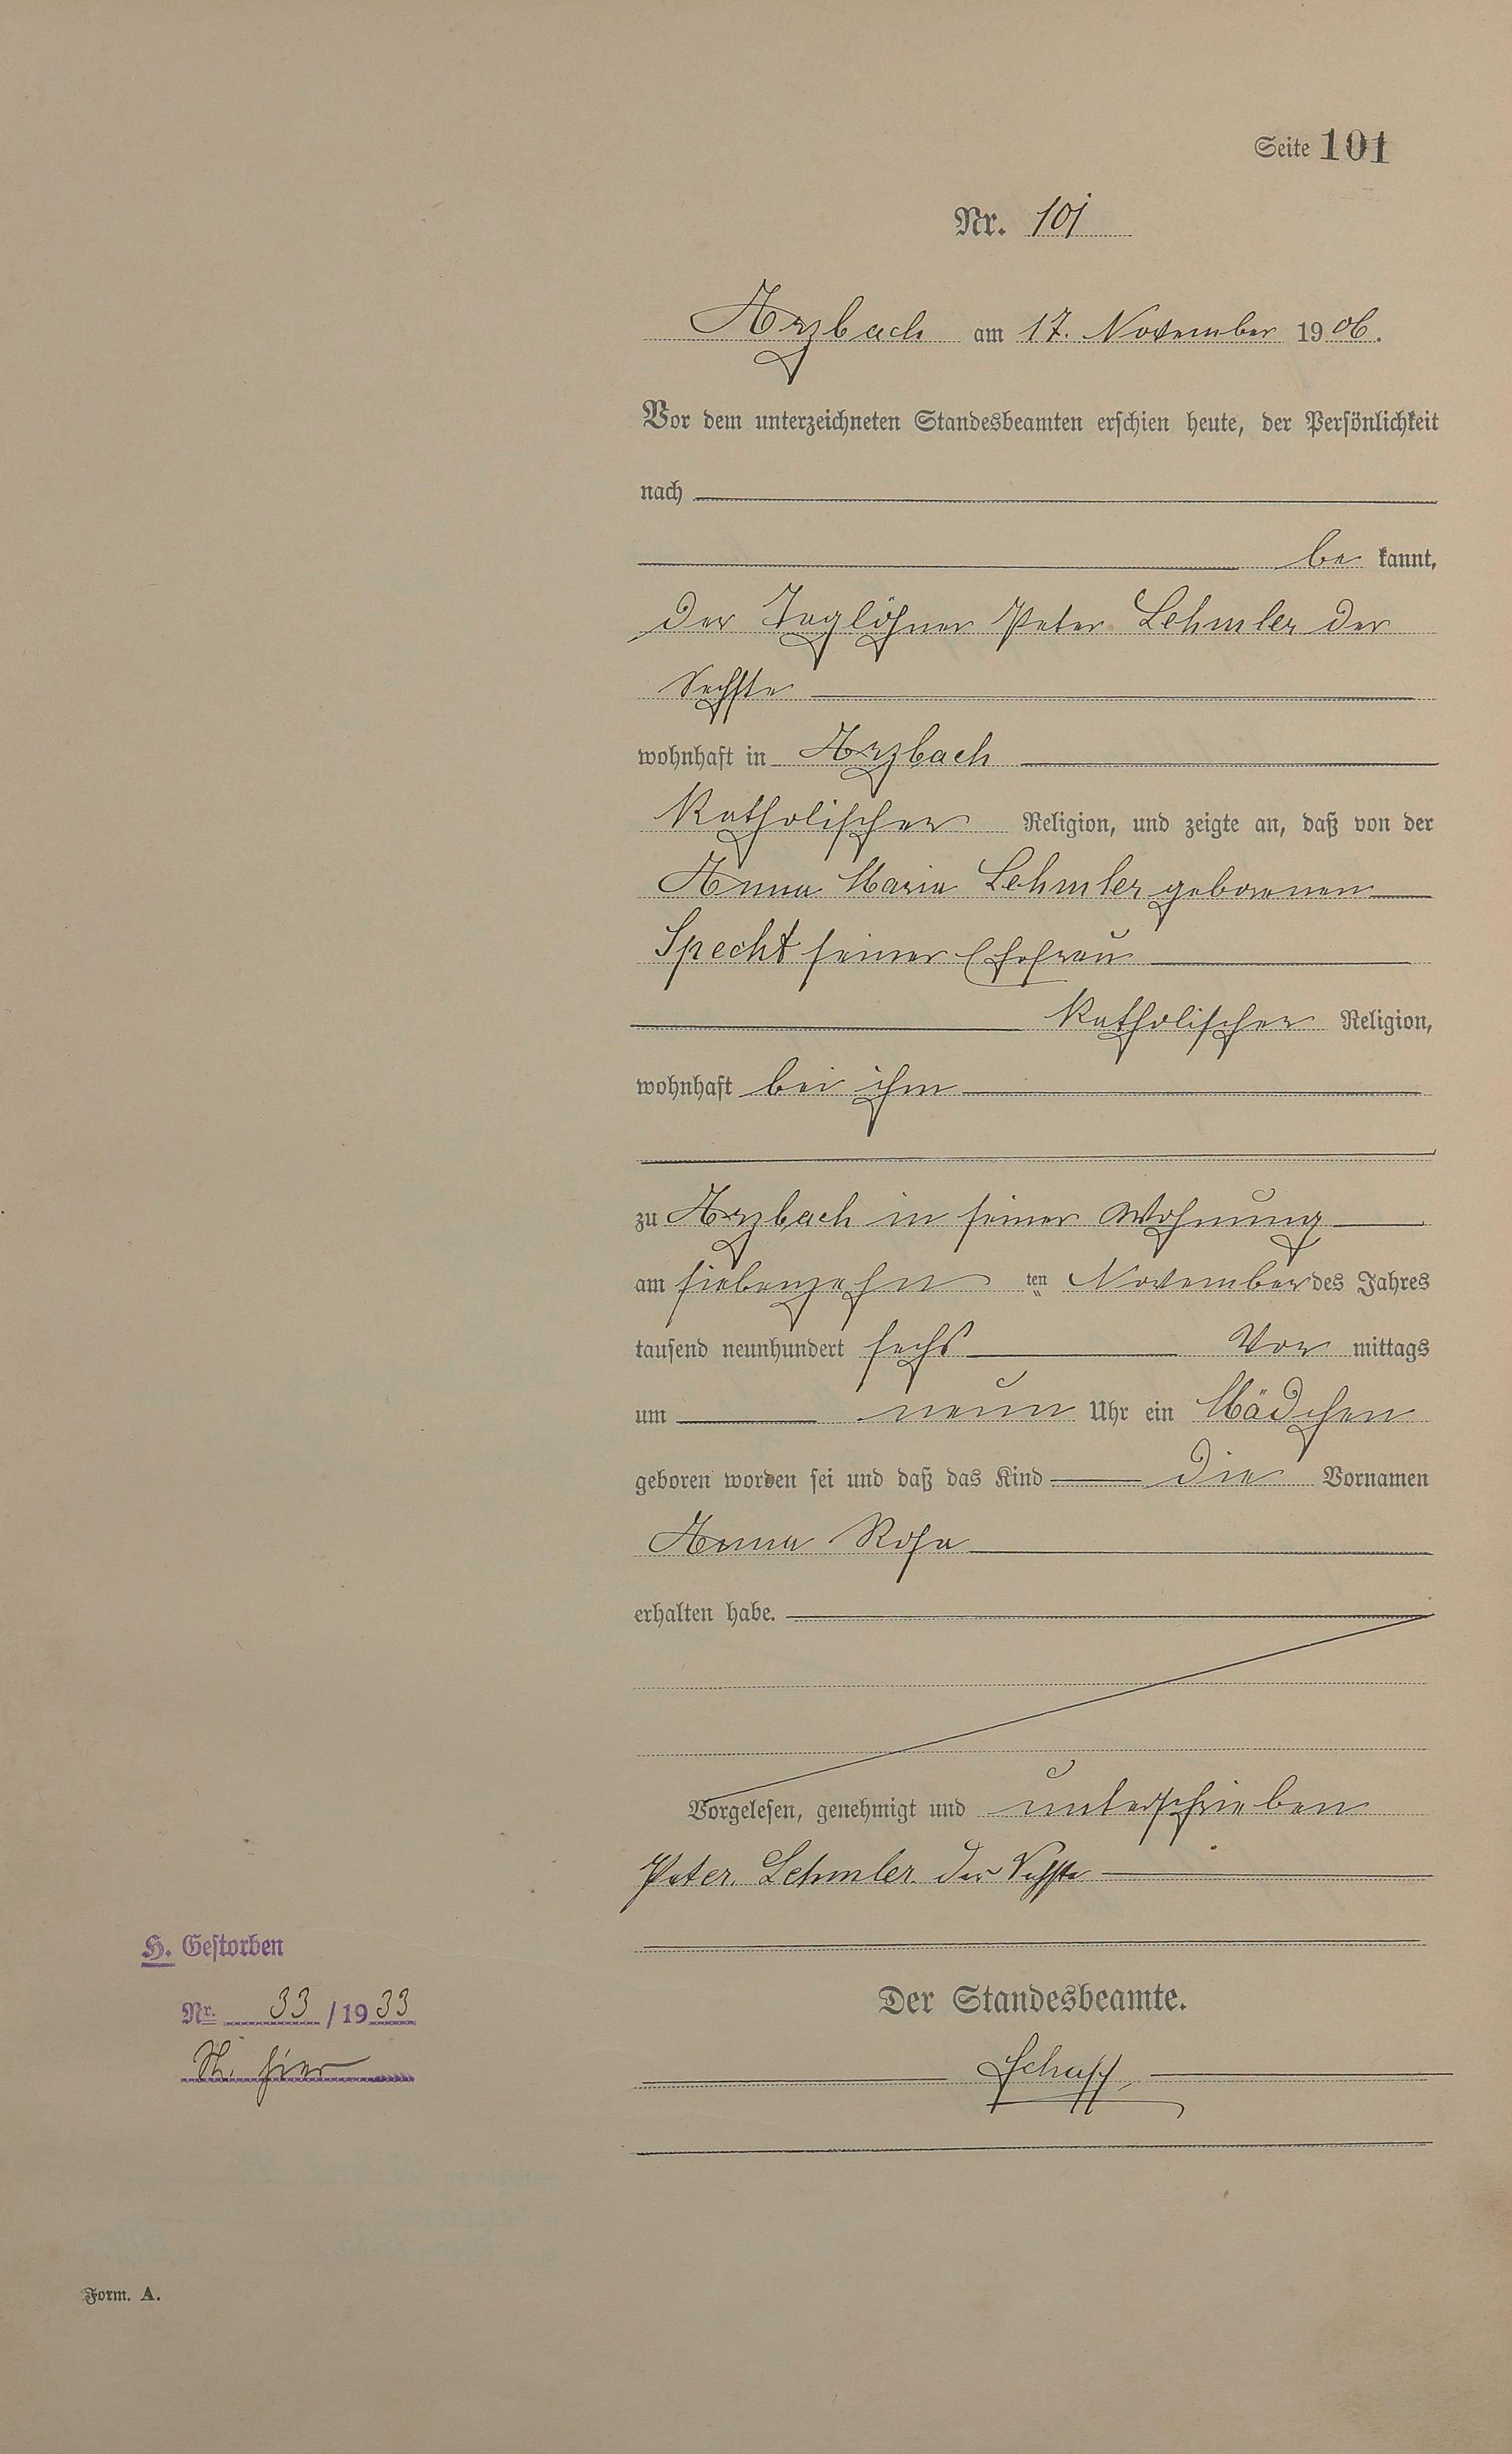 Seite 101
Nr. 101
Arzbach am 17. November 1906.
Vor dem unterzeichneten Standesbeamten erschien heute, der Persönlichkeit
nach
be kannt,
der Taglöhner Peter Lehmler der
Sechste
wohnhaft in Arzbach
katholischer Religion, und zeigte an, daß von der
Anna Maria Lehmler geborenen
Specht seiner Ehefrau
katholischer Religion,
wohnhaft bei ihm
zu Arzbach in seiner Wohnung
am siebenzehn ten November des Jahres
tausend neunhundert sechs Vor mittags
um neun Uhr ein Mädchen
geboren worden sei und daß das Kind die Vornamen
Anna Rosa
erhalten habe.
Vorgelesen, genehmigt und unterschrieben
Peter Lehmler der Sechste
Der Standesbeamte.
H. Gestorben
Nr. 33 / 1933
St. hier
Form. A.